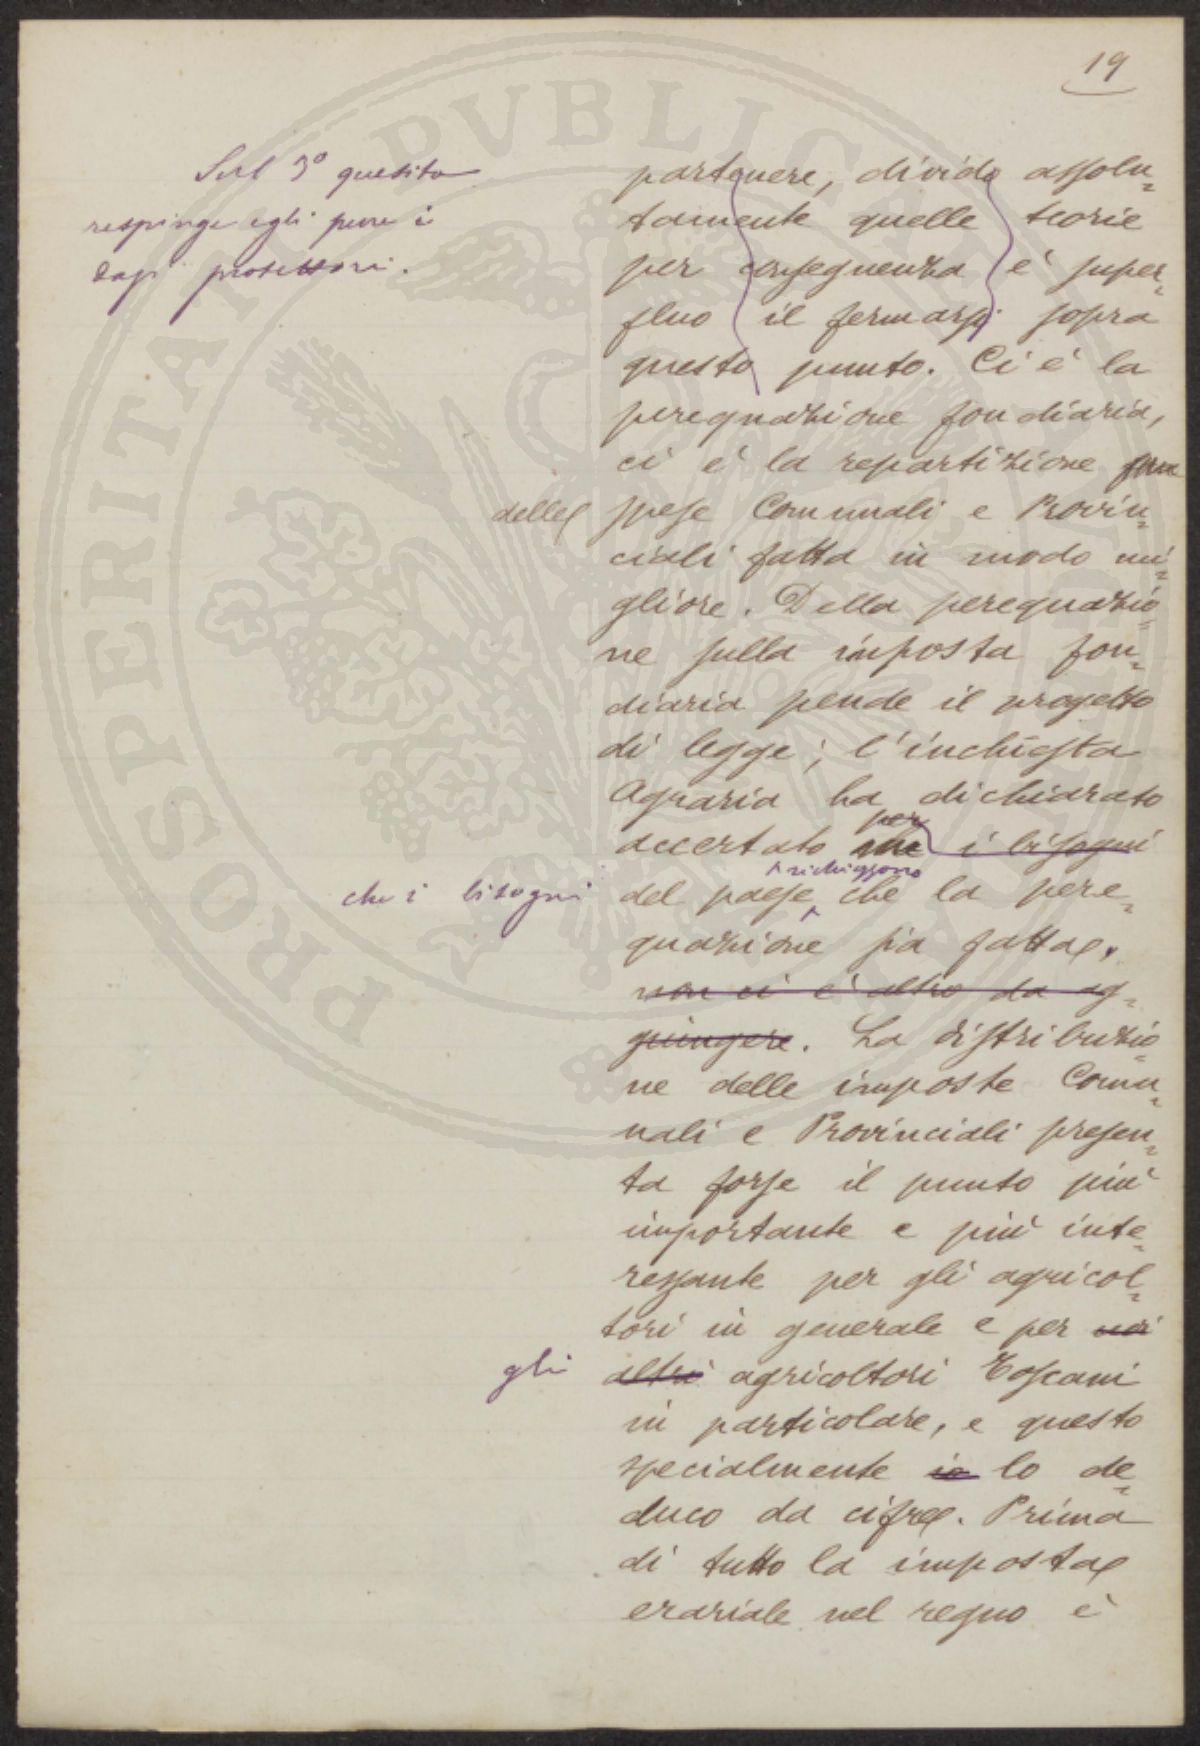 19
Sul 3º quesito
respinge egli pure i
dazi protettori.
partenere, divido assolu=
tamente quelle teorie
per conseguenza è super=
fluo il fermarsi sopra
questo punto. Ci è la
perequazione fondiaria,
ci è la repartizione
delle spese Comunali e Provin=
ciali fatta in modo mi=
gliore. Della perequazio=
ne sulla imposta fon=
diaria pende il progetto
di legge; l'inchiesta
Agraria ha dichiarato
per
accertato i bisogni
richieggono
che i bisogni del paese che la pere=
quazione sia fatta.
non ci è altro da ag=
giungere. La distribuzio=
ne delle imposte Comu=
nali e Provinciali presen=
ta forse il punto più
importante e più inte=
ressante per gli agricol=
tori in generale e per noi
gli altri agricoltori Toscani
in particolare, e questo
specialmente io lo de=
duco da cifre. Prima
di tutto la imposta
erariale nel regno è
PROSPERITATI PVBLICAE